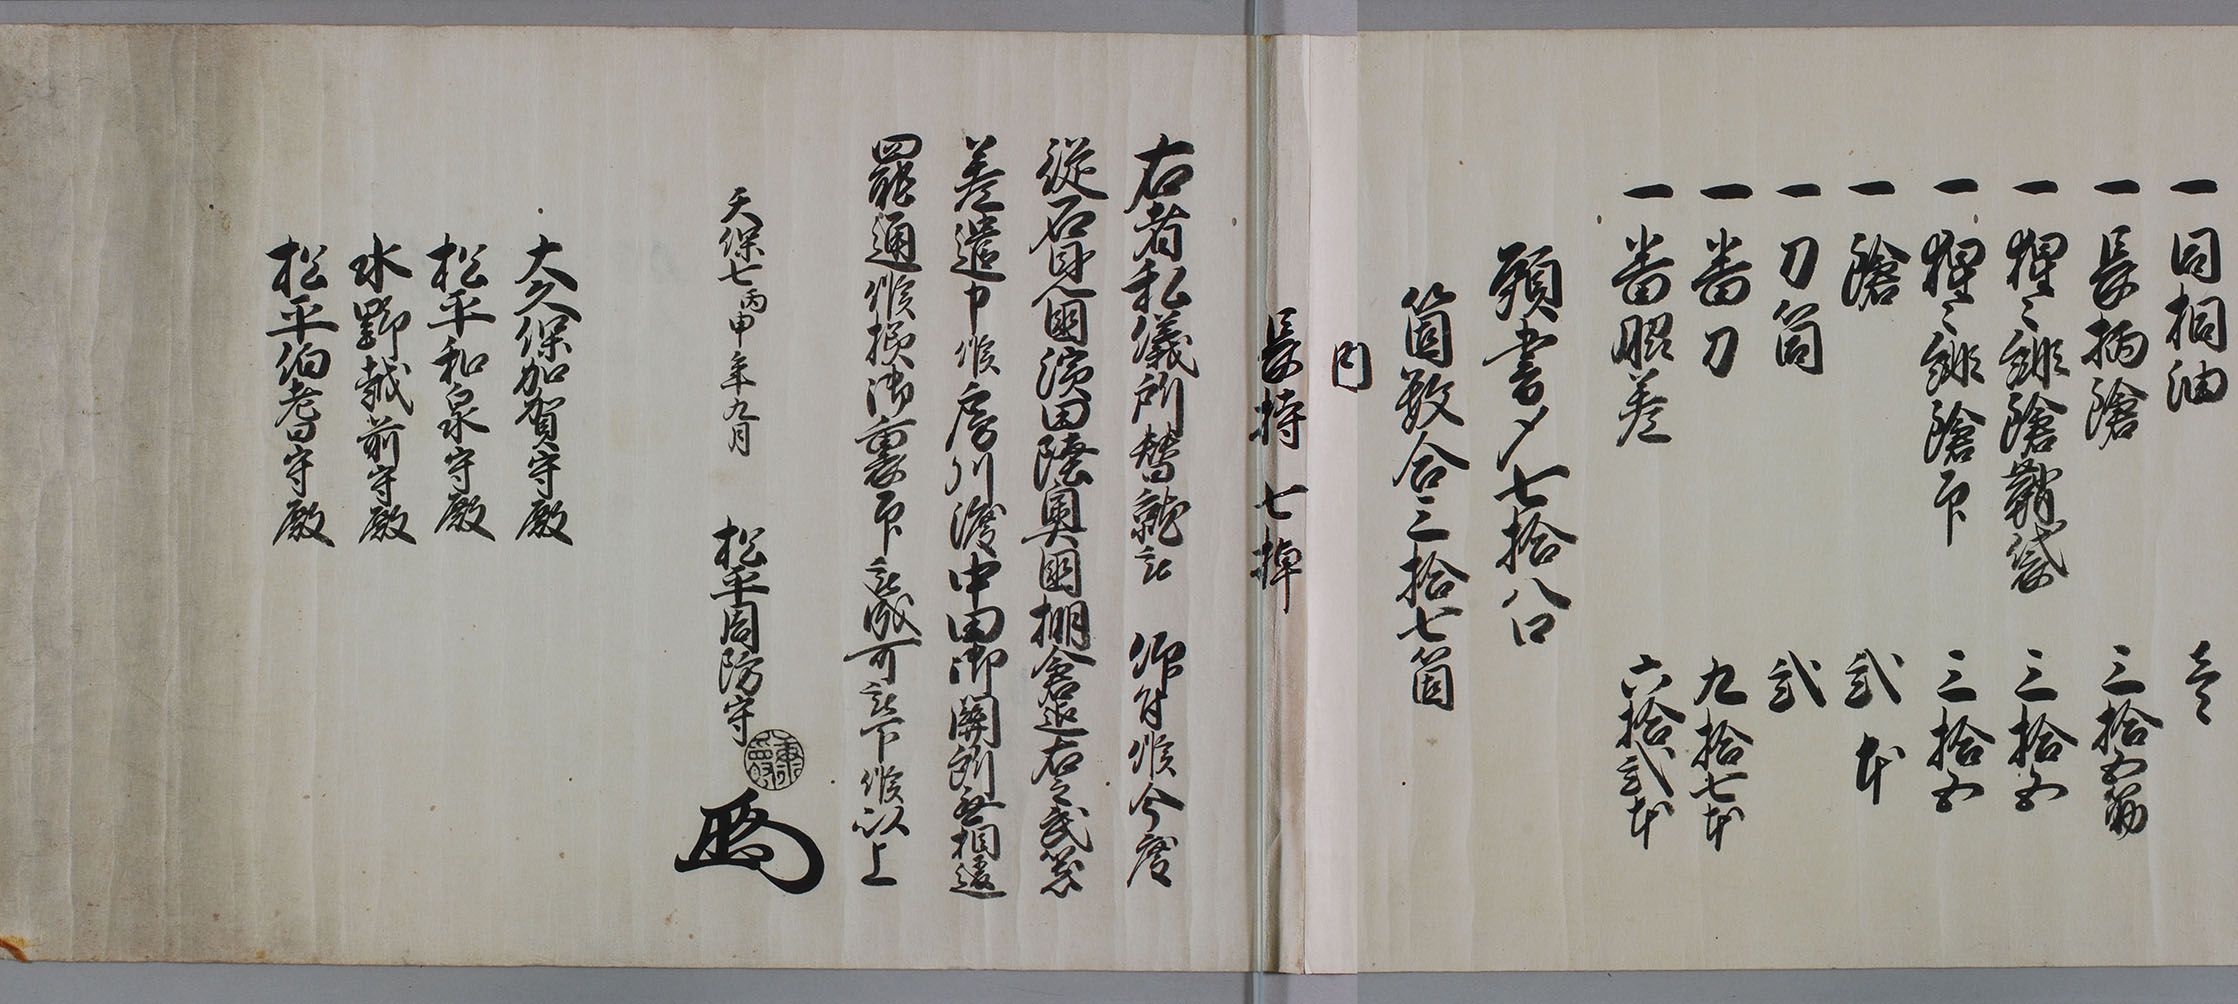 一同桐油　壱
一長柄鎗　三拾五筋
一猩々緋鎗鞘袋　三拾五
一猩々緋鎗印　三拾五
一鎗　弐本
一刀筒　弐
一番刀　九拾七本
一番脇差　六拾弐本
頭書〆七拾八口
箇数合三拾七箇
内
長持七棹
右者私儀所替就被　仰付候今度
従石見国濱田陸奥国棚倉迄右之武器
差遣申候房川渡中田御関所無相違
罷通候様御裏印被成可被下候以上
天保七丙申年九月　松平周防守
大久保加賀守殿
松平和泉守殿
水野越前守殿
松平伯耆守殿